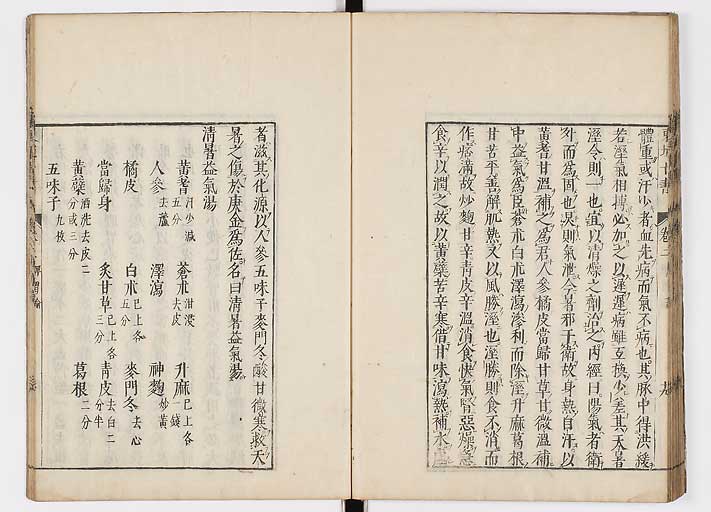 東垣十書
體重或汗少者血先病而氣不病也其脉中得洪緩
若濕氣相搏必加之以遲遲病雖互換少差其天暑
溼令則一也宜以清燥之劑治之内經曰陽氣者衛
外而爲固也炅則氣泄今暑邪干衛故身熱自汗以
黄耆甘溫補之爲君人參橘皮當歸甘草甘微溫補
中益氣爲臣蒼朮白朮澤瀉滲利而除溼升麻葛根
甘苦平善解肌熱又以風勝溼也溼勝則食不消而
作痞滿故炒麯甘辛青皮辛溫消食快氣腎惡燥急
食辛以潤之故以黄蘗苦辛寒借甘味瀉熱補水虛
者滋其化源以人參五味子麥門冬酸甘微寒救天
暑之傷於庚金爲佐名曰清暑益氣湯
清暑益氣湯
黄耆汗少減五分 蒼朮泔浸去皮 升麻已上各一錢
人參去蘆 澤瀉 神麯炒黄
橘皮 白朮已上各五分 麥門冬去心
當歸身 炙甘草已上各三分 青皮去白二分半
黄蘗酒洗去皮二分或三分 葛根二分
五味子九枚